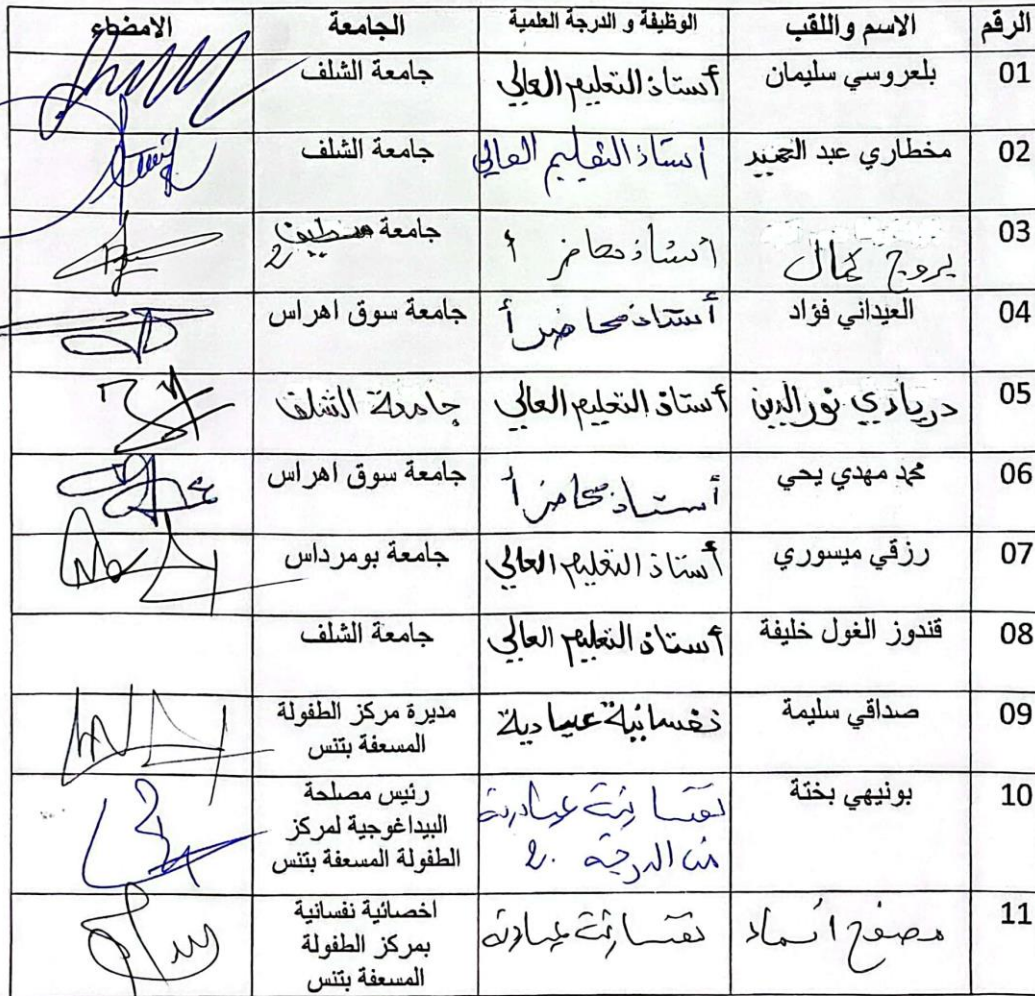 الرقم الاسم واللقب الوظيفة و الدرجة العلمية الجامعة الامضاء
01 بلعروسي سليمان أستاذ التعليم العالي جامعة الشلف
02 مخطاري عبد الحميد أستاذ التعليم العالي جامعة الشلف
03 كمال أستاذ محاضر أ جامعة 2
04 العيداني فؤاد أستاذ محاضر أ جامعة سوق اهراس
05 دريادي نور الدين أستاذ التعليم العالي جامعة الشلف
06 محمد مهدي يحي أستاذ محاضر أ جامعة سوق اهراس
07 رزقي ميسوري أستاذ التعليم العالي جامعة بومرداس
08 قندوز الغول خليفة أستاذ التعليم العالي جامعة الشلف
09 صداقي سليمة نفسانية عيادية مديرة مركز الطفولة
المسعفة بتنس
10 بونيهي بختة نفسانية عيادية رئيس مصلحة
من الدرجة 2. البيداغوجية لمركز
الطفولة المسعفة بتنس
11 نفسانية عيادية اخصائية نفسانية
بمركز الطفولة
المسعفة بتنس